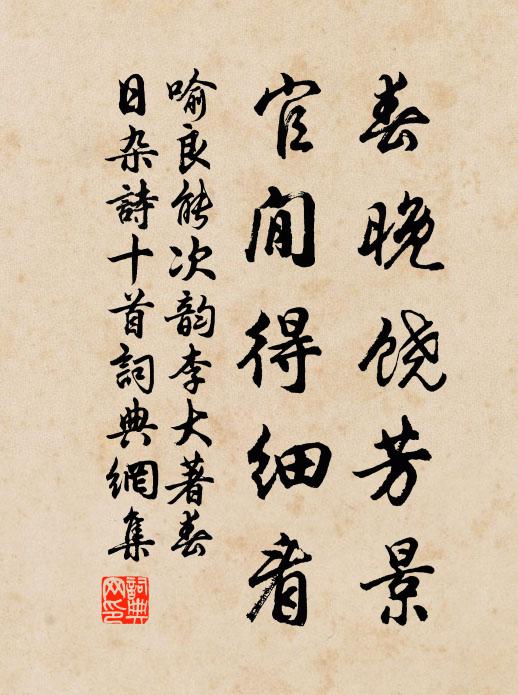 春晚饶芳景
官閒得细看
喻良能次韵李大著春
日杂詩十首詞典網集
詞典網印